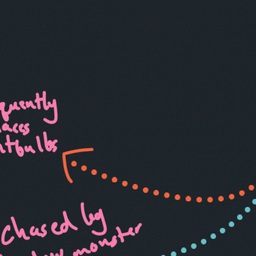 quently
htbulbs
chased by
monster